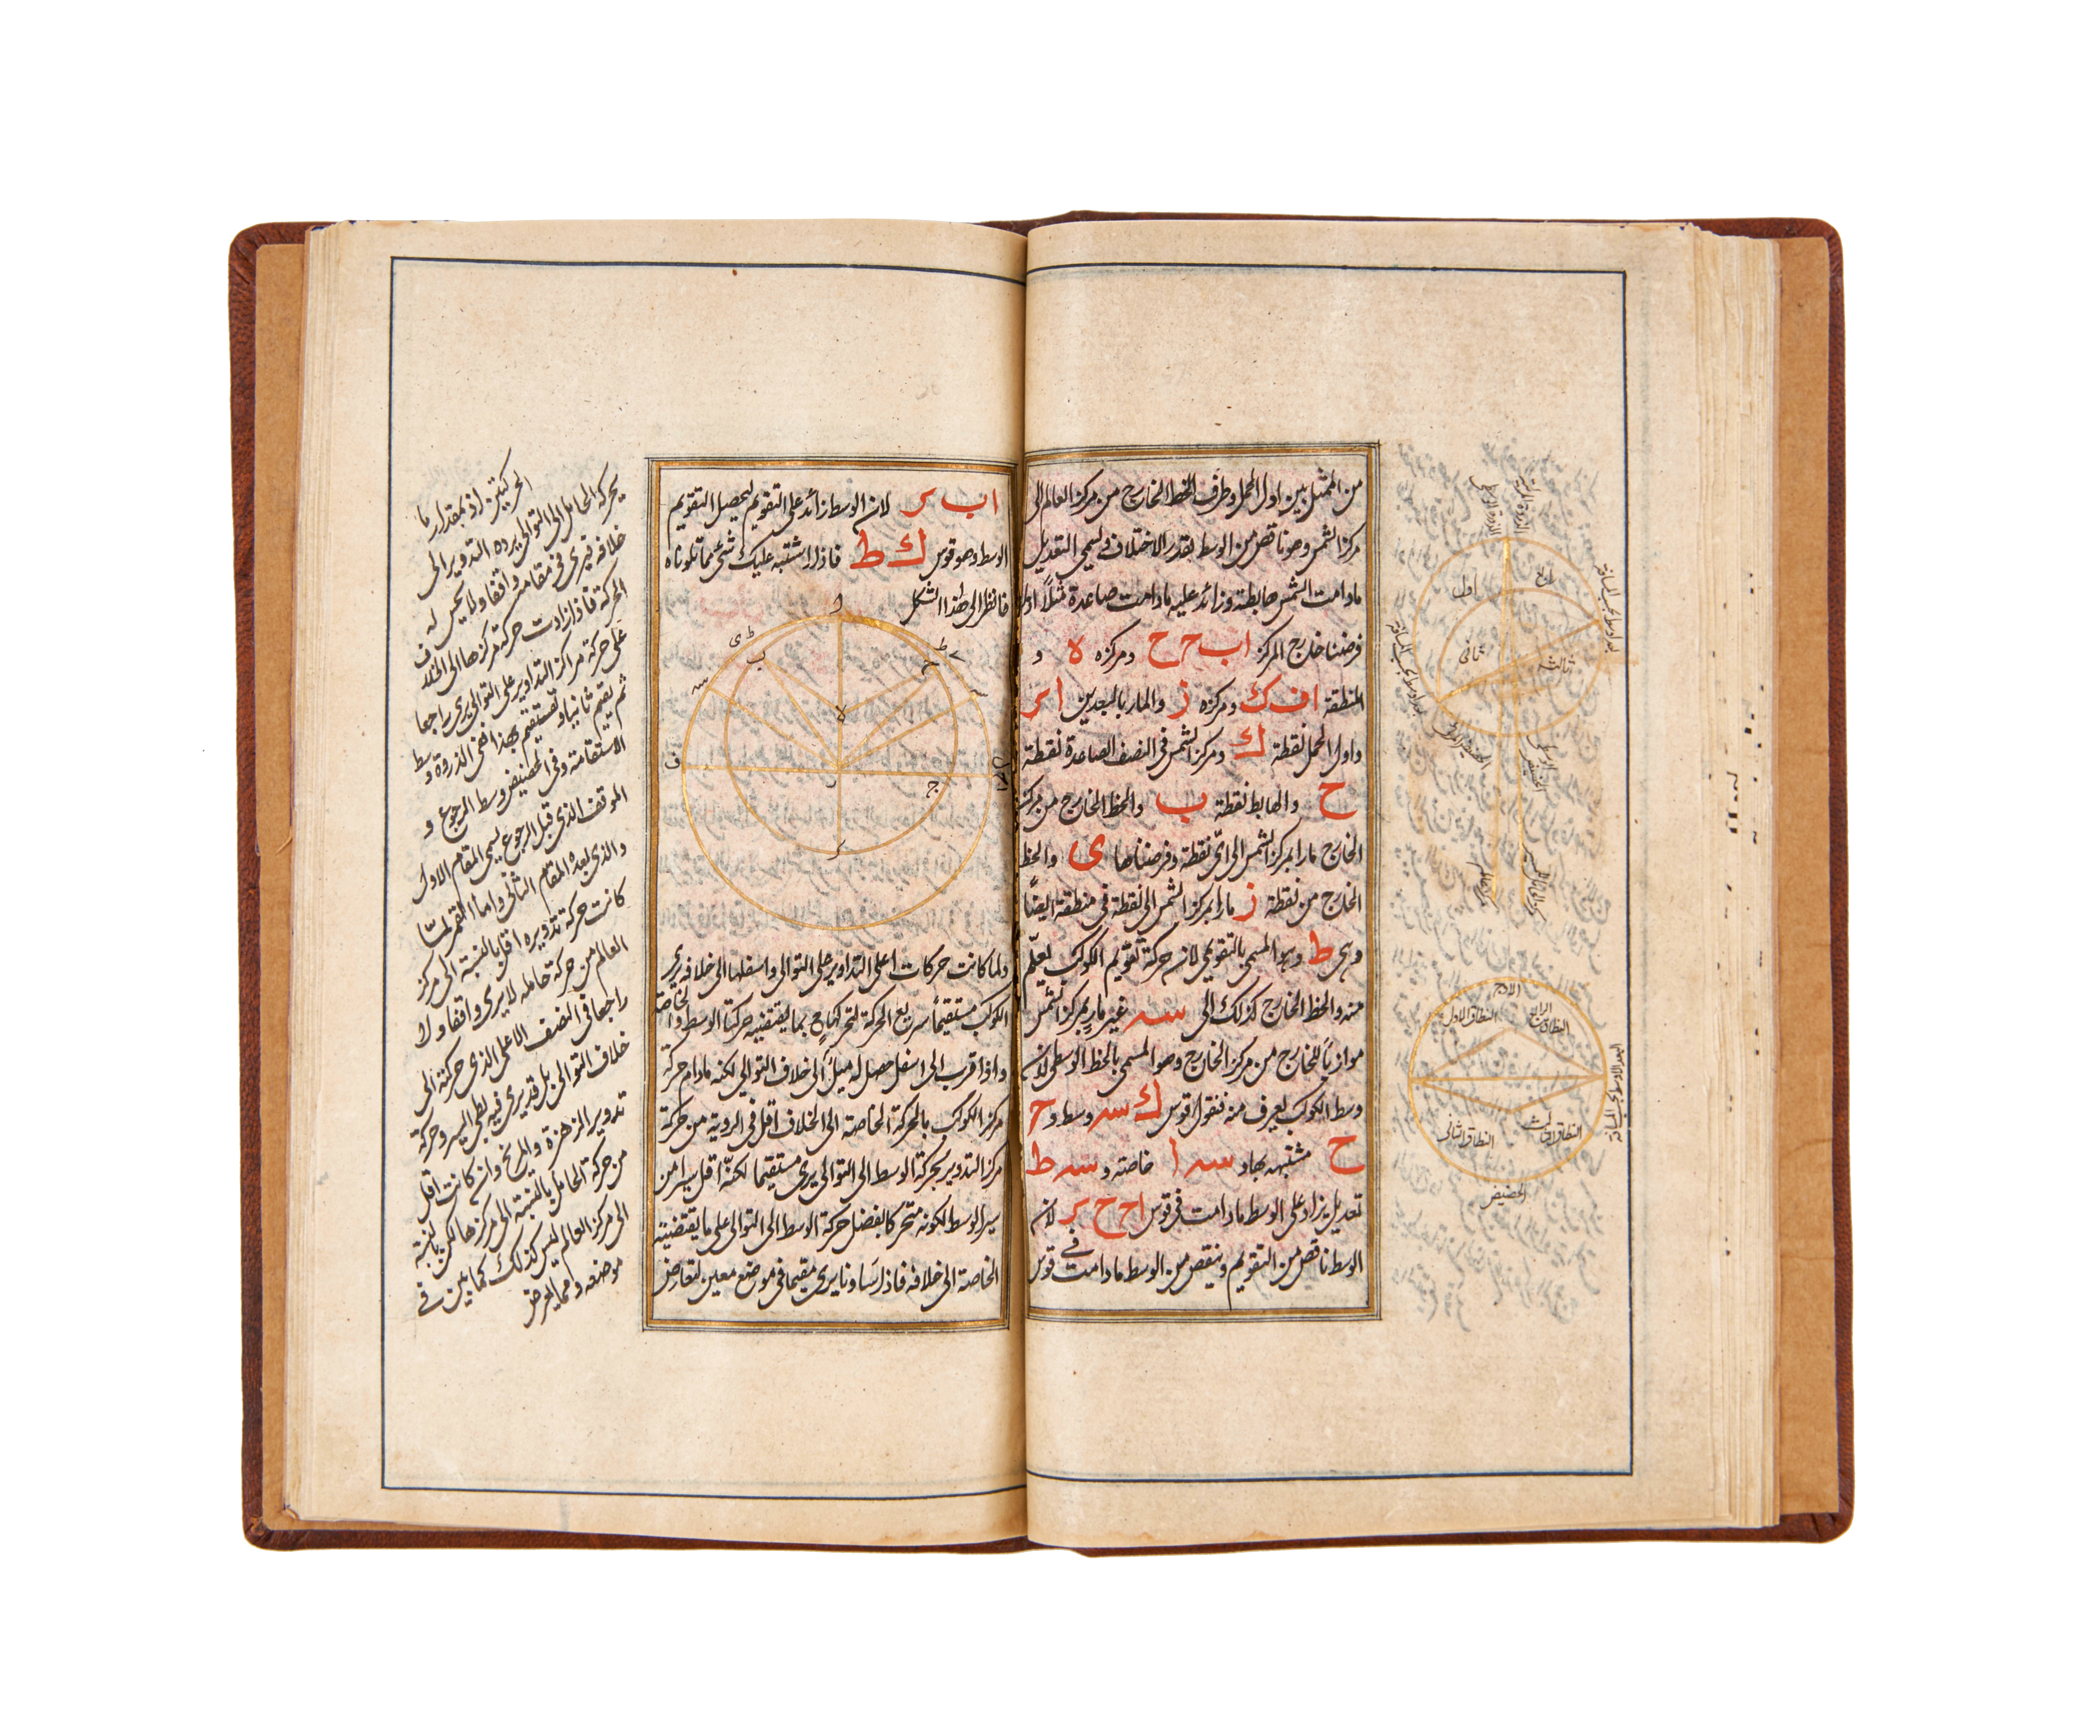 من الممثل بين اول الحمل وطرف الخط الخارج من مركز العالم الى
مركز الشمس وهو ناقص من الوسط بقدر الاختلاف ويسمى التعديل
مادامت الشمس هابطة وزائد عليه مادامت صاعدة مثلاً اذا
فرضنا خارج المركز اب ح ح ومركزه ه و
المنطقة اف ك ومركزه ز والمار بالبعدين ا ر
واول الحمل نقطة ك ومركز الشمس فى النصف الصاعدة نقطة
ح والهابط نقطة ب والخط الخارج من مركز
الخارج مارا بمركز الشمس الى اى نقطة وفرضناها ى والخط
الخارج من نقطة ز مارا بمركز الشمس الى نقطة فى منطقة ايضاً
وهى ط وهو المسمى بالتقويمى لان حركة تقويم الكوكب يعلم
منه والخط الخارج كذلك الى سه غير مار بمركز الشمس
موازياً للخارج من مركز الخارج وهو المسمى بالخط الوسطى لان
وسط الكوكب يعرف منه فنقول قوس ك سه وسط و ح
ح مشتبهه بها و سه ا خاصته و سه ط
تعديل يزاد على الوسط مادامت فى قوس ا ح ح ر لان
الوسط ناقص من التقويم وينقص من الوسط مادامت فى قوس
الاوج
النطاق الاول
النطاق الرابع
النطاق الثانى
النطاق الثالث
الحضيض
اول
ثانى
ثالث
اب ر لان الوسط زائد على التقويم ليحصل التقويم
الوسط وهو قوس ك ط فاذا اشتبه عليك شئ مما تلوناه
فانظر الى هذا الشكل
ولما كانت حركات اعلى التداوير على التوالى واسفلها الى خلافه يرى
الكوكب مستقيماً سريع الحركة لتحركها ح بما يقتضيه حركتا الوسط والخاصة
واذا قرب الى اسفل حصل له ميل الى خلاف التوالي لكنه مادام حركة
مركز الكوكب بالحركة الخاصة الى الخلاف اقل فى الروية من حركة
مركز التدوير بحركة الوسط الى التوالى يرى مستقيما لكنه اقل سيرا من
سير الوسط لكونه متحركا بفضل حركة الوسط الى التوالى على ما يقتضيه
الخاصة الى خلافه فاذا تساوتا يرى مقيما فى موضع معين لتعارض
الحركتين اذ بمقدار ما
يحركه الحامل الى التوالى يرده التدوير الى
خلافه فيرى فى مقامه واقفا ولا يحس له
الحركة فاذا زادت حركة مركزها الى الخلاف
على حركة مراكز التداوير على التوالى يرى راجعا
ثم يقيم ثانيا و يستقيم بهذا ففى الذروة وسط
الاستقامة وفى الحضيض وسط الرجوع و
الموقف الذى قبل الرجوع يسمى المقام الاول
والذى بعده المقام الثانى واما القمر لما
كانت حركة تدويره اقل بالنسبة الى مركز
العالم من حركة حامله لا يرى واقفا ولا
راجعا فى النصف الاعلى الذى حركته الى
خلاف التوالى بل قد يرى فيه بطى السير وحركة
تدوير الزهرة والمريخ وان كانت اقل
من حركة الحامل بالنسبة الى مركزها لكن بالنسبة
الى مركز العالم ليس كذلك كما بين فى
موضعه ومما يعرض